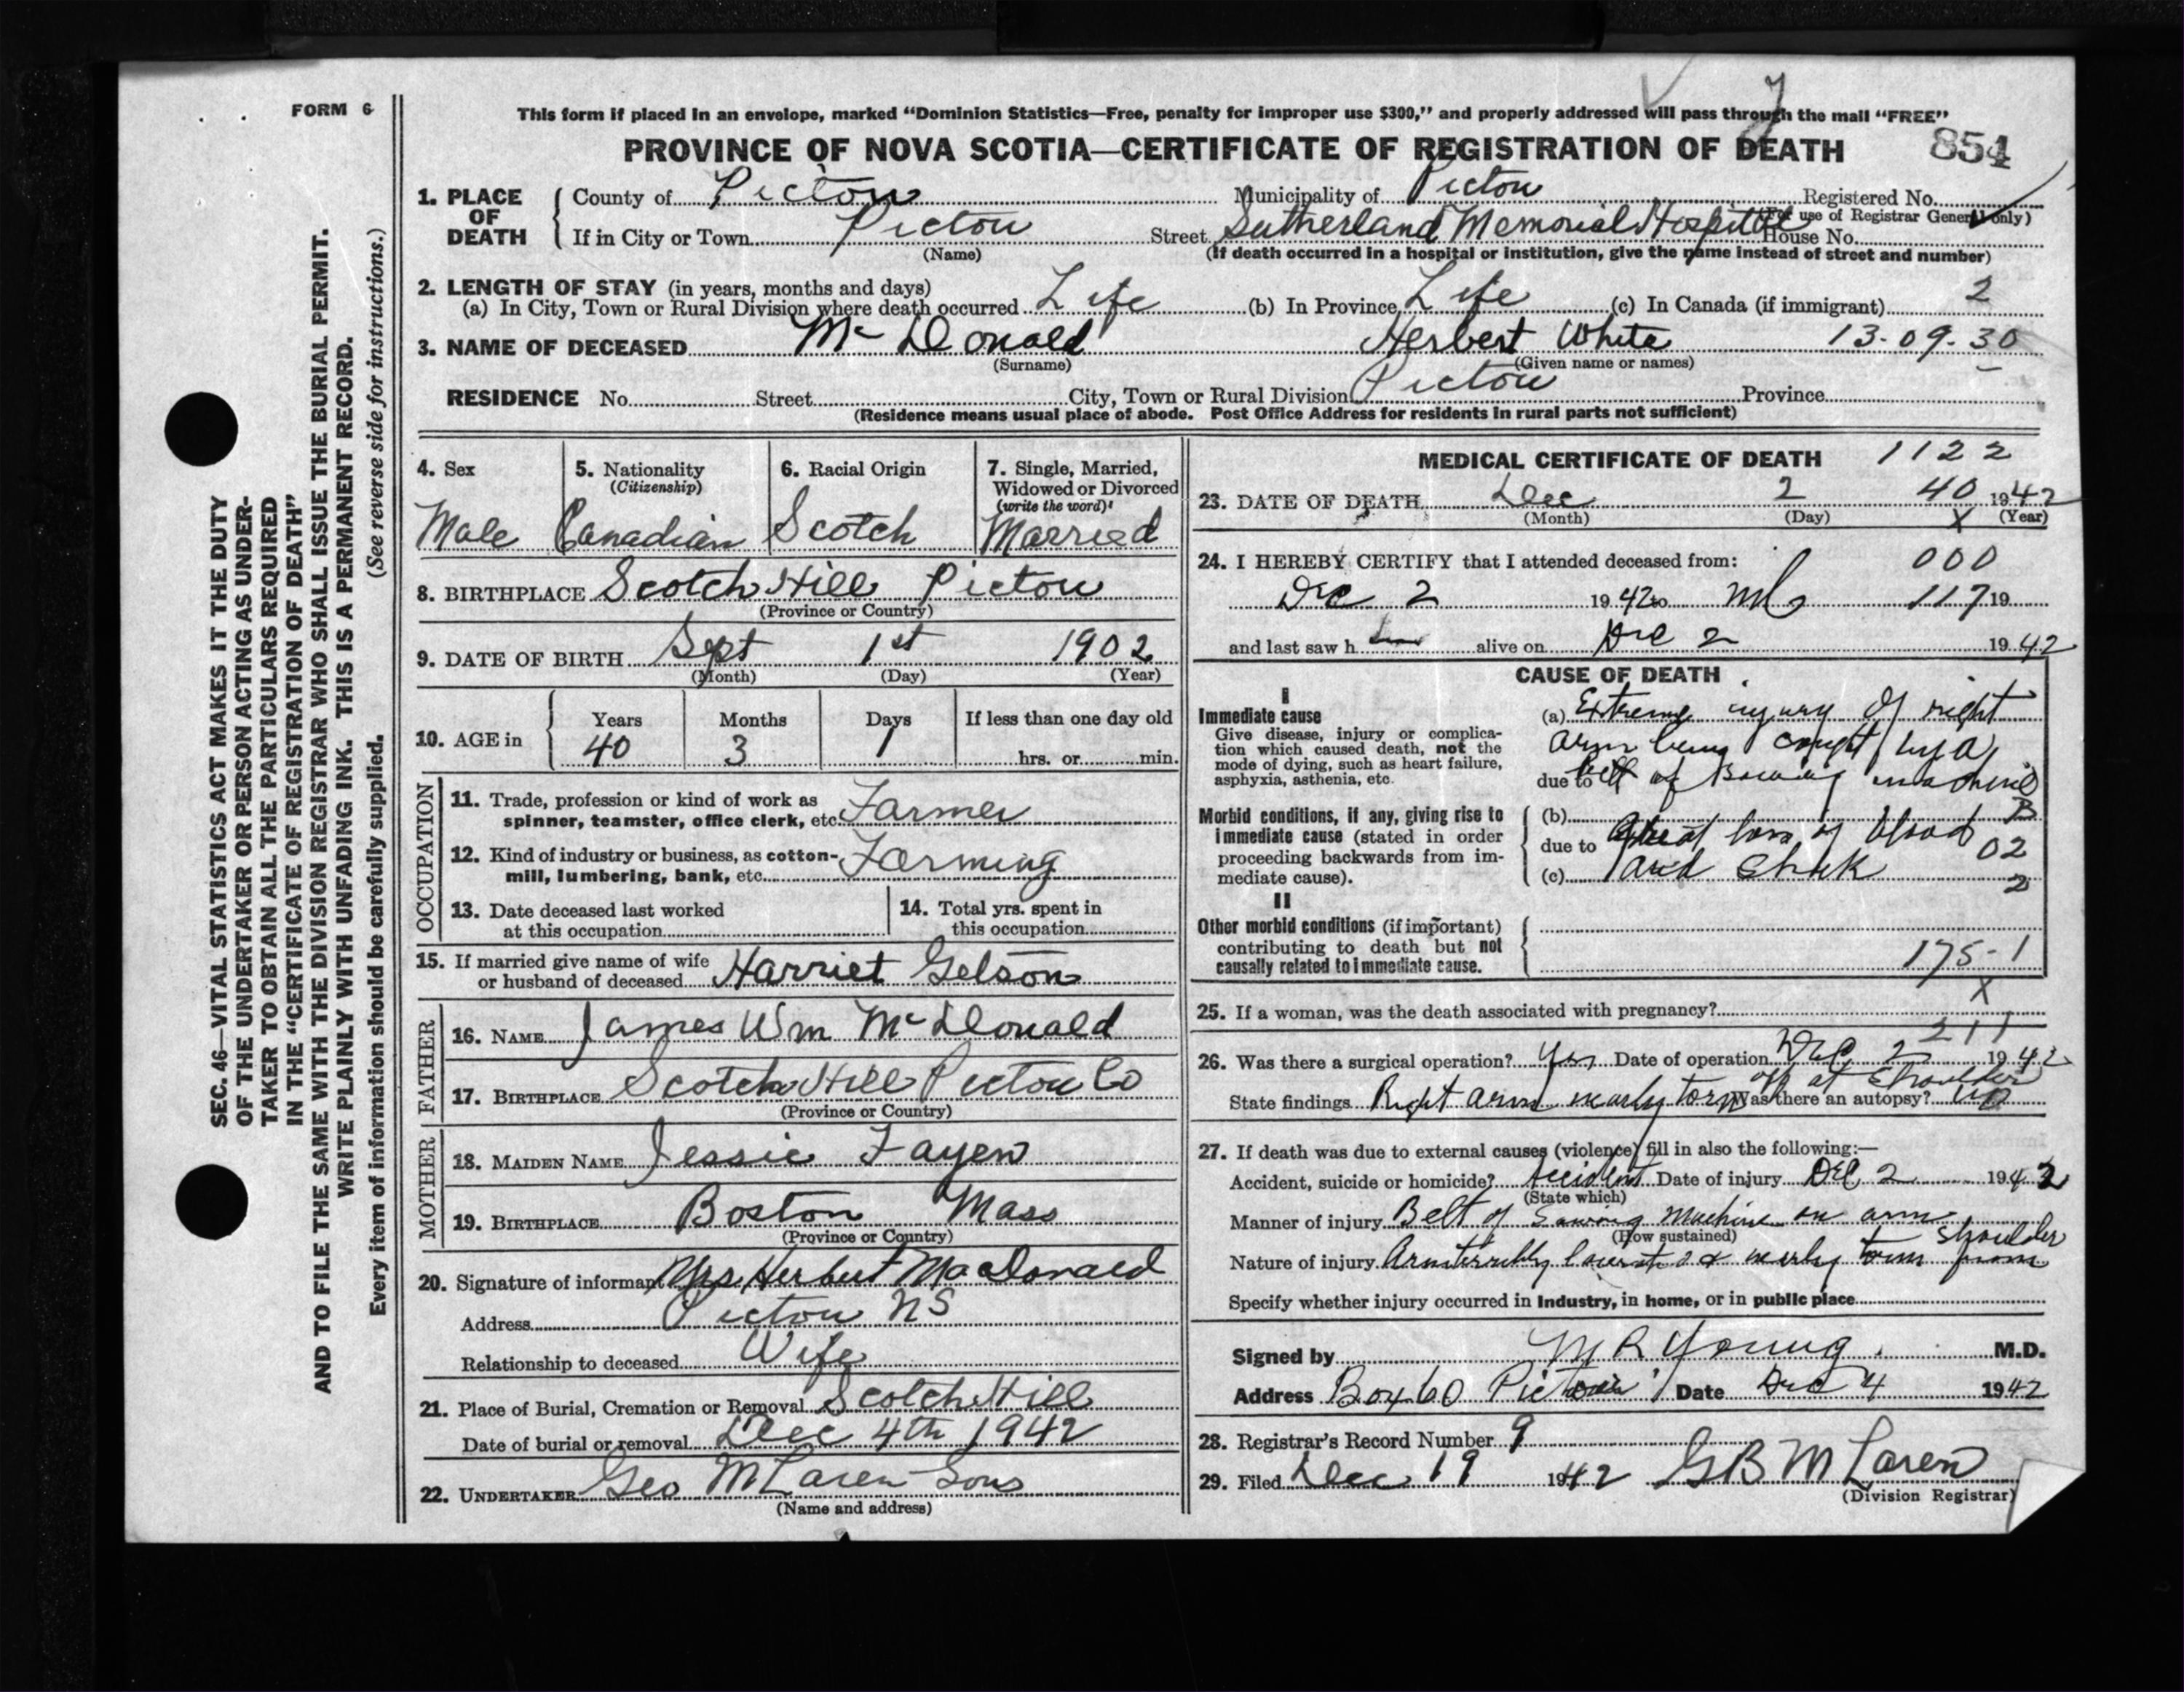 FORM 6
This form if placed in an envelope, marked “Dominion Statistics—Free, penalty for improper use $300,” and properly addressed will pass through the mail “FREE”
PROVINCE OF NOVA SCOTIA—CERTIFICATE OF REGISTRATION OF DEATH 854
1. PLACE OF DEATH
County of Pictou Municipality of Pictou Registered No.
(For use of Registrar General only)
If in City or Town Pictou Street Sutherland Memorial Hospital House No.
(Name) (If death occurred in a hospital or institution, give the name instead of street and number)
2. LENGTH OF STAY (in years, months and days)
(a) In City, Town or Rural Division where death occurred Life (b) In Province Life (c) In Canada (if immigrant) 2
3. NAME OF DECEASED Mc Donald Herbert White 13-09-30
(Surname) (Given name or names)
RESIDENCE No. Street City, Town or Rural Division Pictou Province
(Residence means usual place of abode. Post Office Address for residents in rural parts not sufficient)
4. Sex
Male
5. Nationality
(Citizenship)
Canadian
6. Racial Origin
Scotch
7. Single, Married,
Widowed or Divorced
(write the word)
Married
8. BIRTHPLACE Scotch Hill Pictou
(Province or Country)
9. DATE OF BIRTH Sept 1st 1902
(Month) (Day) (Year)
10. AGE in
Years Months Days If less than one day old
40 3 1 hrs. or min.
OCCUPATION
11. Trade, profession or kind of work as
spinner, teamster, office clerk, etc. Farmer
12. Kind of industry or business, as cotton-
mill, lumbering, bank, etc. Farming
13. Date deceased last worked
at this occupation
14. Total yrs. spent in
this occupation
15. If married give name of wife
or husband of deceased Harriet Gelson
FATHER
16. NAME James Wm McDonald
17. BIRTHPLACE Scotch Hill Pictou Co
(Province or Country)
MOTHER
18. MAIDEN NAME Jessie Fayen
19. BIRTHPLACE Boston Mass
(Province or Country)
20. Signature of informant Mrs Herbert MacDonald
Address Pictou NS
Relationship to deceased Wife
21. Place of Burial, Cremation or Removal Scotch Hill
Date of burial or removal Dec 4th 1942
22. UNDERTAKER Geo McLaren Sons
(Name and address)
MEDICAL CERTIFICATE OF DEATH 1122
23. DATE OF DEATH Dec 2 40 1942
(Month) (Day) X (Year)
24. I HEREBY CERTIFY that I attended deceased from: 000
Dec 2 1942 to 117 19
and last saw h alive on Dec 2 1942
CAUSE OF DEATH
I
Immediate cause
Give disease, injury or complica-
tion which caused death, not the
mode of dying, such as heart failure,
asphyxia, asthenia, etc.
(a) Extreme injury of right
arm being caught by a
due to belt of sawing machine
Morbid conditions, if any, giving rise to
immediate cause (stated in order
proceeding backwards from im-
mediate cause).
(b) B
due to Great loss of blood 02
(c) and shock 2
II
Other morbid conditions (if important)
contributing to death but not
causally related to immediate cause.
175-1
X
25. If a woman, was the death associated with pregnancy?
211
26. Was there a surgical operation? Yes Date of operation Dec 2 1942
State findings Right arm nearly torn off at shoulder Was there an autopsy? no
27. If death was due to external causes (violence) fill in also the following:—
Accident, suicide or homicide? Accident Date of injury Dec 2 1942
(State which)
Manner of injury Belt of Sawing Machine on arm
(How sustained)
Nature of injury Arm terribly lacerated & nearly torn from shoulder
Specify whether injury occurred in industry, in home, or in public place
Signed by M R Young. M.D.
Address Box 60 Pictou Date Dec 4 1942
28. Registrar's Record Number 9
29. Filed Dec 19 1942 G B McLaren
(Division Registrar)
SEC. 46—VITAL STATISTICS ACT MAKES IT THE DUTY
OF THE UNDERTAKER OR PERSON ACTING AS UNDER-
TAKER TO OBTAIN ALL THE PARTICULARS REQUIRED
IN THE “CERTIFICATE OF REGISTRATION OF DEATH”
AND TO FILE THE SAME WITH THE DIVISION REGISTRAR WHO SHALL ISSUE THE BURIAL PERMIT.
WRITE PLAINLY WITH UNFADING INK. THIS IS A PERMANENT RECORD.
Every item of information should be carefully supplied. (See reverse side for instructions.)